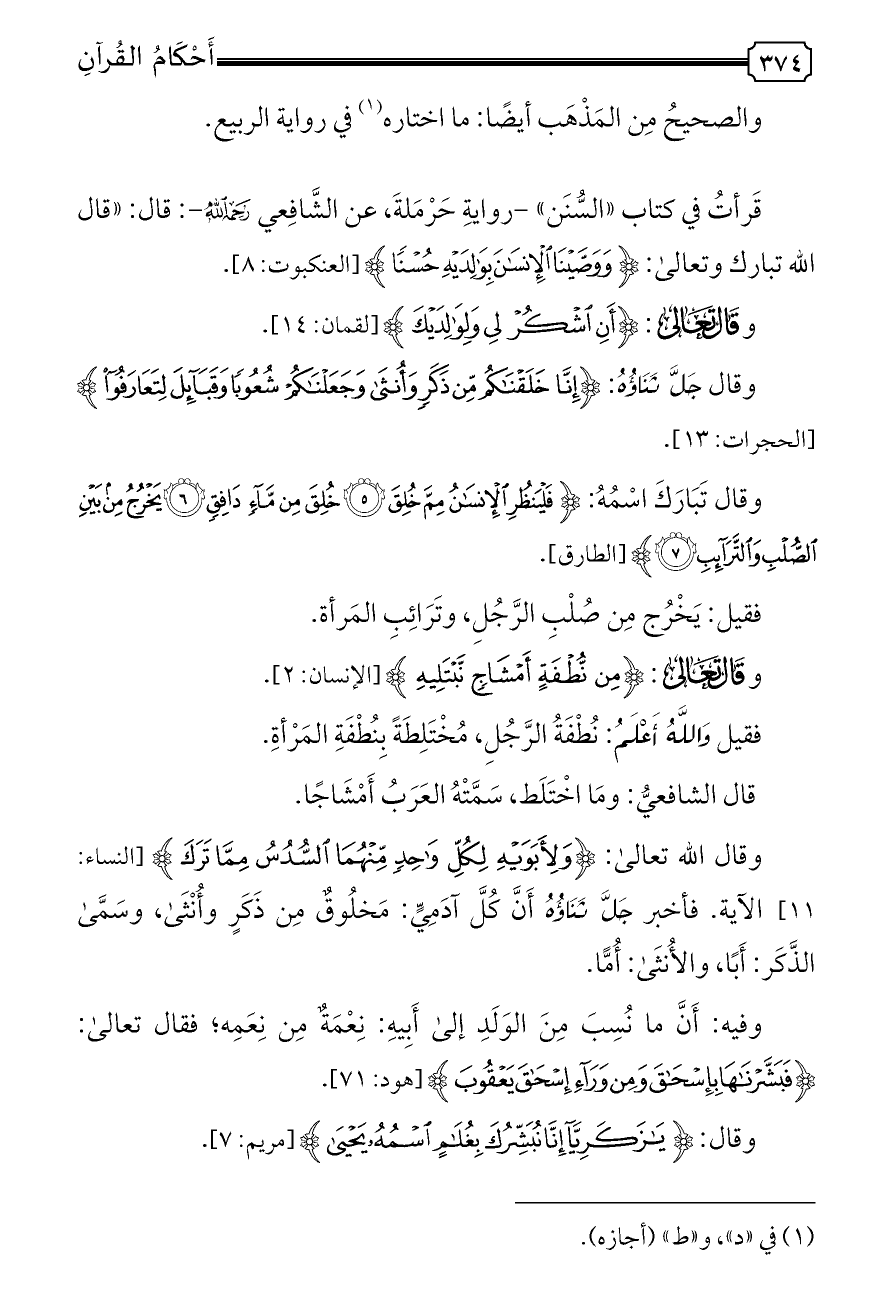 ٣٧٤ أَحْكَامُ القُرآنِ
والصحيحُ مِن المَذْهَب أيضًا: ما اختاره(١) في رواية الربيع.
قَرأتُ في كتاب «السُّنَن» -روايةِ حَرْمَلةَ، عن الشَّافِعي رَحِمَهُ اللَّهُ-: قال: «قال
الله تبارك وتعالىٰ: ﴿وَوَصَّيْنَا ٱلْإِنسَٰنَ بِوَٰلِدَيْهِ حُسْنًا﴾ [العنكبوت: ٨].
وقَالَ تَعَالَىٰ: ﴿أَنِ ٱشْكُرْ لِي وَلِوَٰلِدَيْكَ﴾ [لقمان: ١٤].
وقال جَلَّ ثَنَاؤُهُ: ﴿إِنَّا خَلَقْنَٰكُم مِّن ذَكَرٍ وَأُنثَىٰ وَجَعَلْنَٰكُمْ شُعُوبًا وَقَبَآئِلَ لِتَعَارَفُوٓا۟﴾
[الحجرات: ١٣].
وقال تَبَارَكَ اسْمُهُ: ﴿فَلْيَنظُرِ ٱلْإِنسَٰنُ مِمَّ خُلِقَ ٥ خُلِقَ مِن مَّآءٍ دَافِقٍ ٦ يَخْرُجُ مِنۢ بَيْنِ
ٱلصُّلْبِ وَٱلتَّرَآئِبِ ٧﴾ [الطارق].
فقيل: يَخْرُج مِن صُلْبِ الرَّجُلِ، وتَرَائِبِ المَرأة.
وقَالَ تَعَالَىٰ: ﴿مِن نُّطْفَةٍ أَمْشَاجٍ نَّبْتَلِيهِ﴾ [الإنسان: ٢].
فقيل وَاللَّهُ أَعْلَمُ: نُطْفَةُ الرَّجُلِ، مُخْتَلِطَةً بِنُطْفَةِ المَرْأةِ.
قال الشافعيُّ: ومَا اخْتَلَط، سَمَّتْهُ العَرَبُ أَمْشَاجًا.
وقال الله تعالىٰ: ﴿وَلِأَبَوَيْهِ لِكُلِّ وَٰحِدٍ مِّنْهُمَا ٱلسُّدُسُ مِمَّا تَرَكَ﴾ [النساء:
١١] الآية. فأخبر جَلَّ ثَنَاؤُهُ أَنَّ كُلَّ آدَمِيٍّ: مَخلُوقٌ مِن ذَكَرٍ وأُنْثَىٰ، وسَمَّىٰ
الذَّكَر: أَبًا، والأُنثَىٰ: أُمًّا.
وفيه: أَنَّ ما نُسِبَ مِنَ الوَلَدِ إلىٰ أَبِيهِ: نِعْمَةٌ مِن نِعَمِه؛ فقال تعالىٰ:
﴿فَبَشَّرْنَٰهَا بِإِسْحَٰقَ وَمِن وَرَآءِ إِسْحَٰقَ يَعْقُوبَ﴾ [هود: ٧١].
وقال: ﴿يَٰزَكَرِيَّآ إِنَّا نُبَشِّرُكَ بِغُلَٰمٍ ٱسْمُهُۥ يَحْيَىٰ﴾ [مريم: ٧].
(١) في «د»، و«ط» (أجازه).